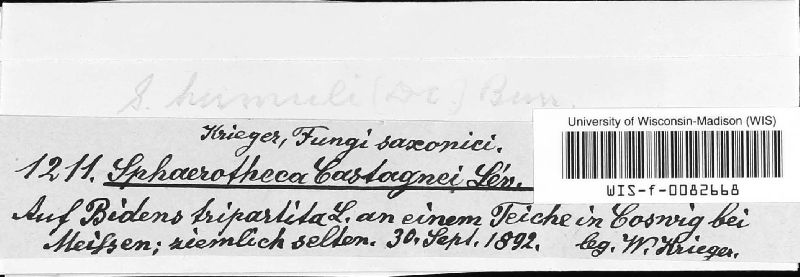 S. humuli (DC.) Burr.
Krieger, Fungi saxonici.
University of Wisconsin-Madison (WIS)
1211. Sphaerotheca Castagnei Lév.
WIS-f-0082668
Auf Bidens tripartita L. an einem Teiche in Coswig bei
Meißen; ziemlich selten. 30. Sept. 1892. leg. W. Krieger.